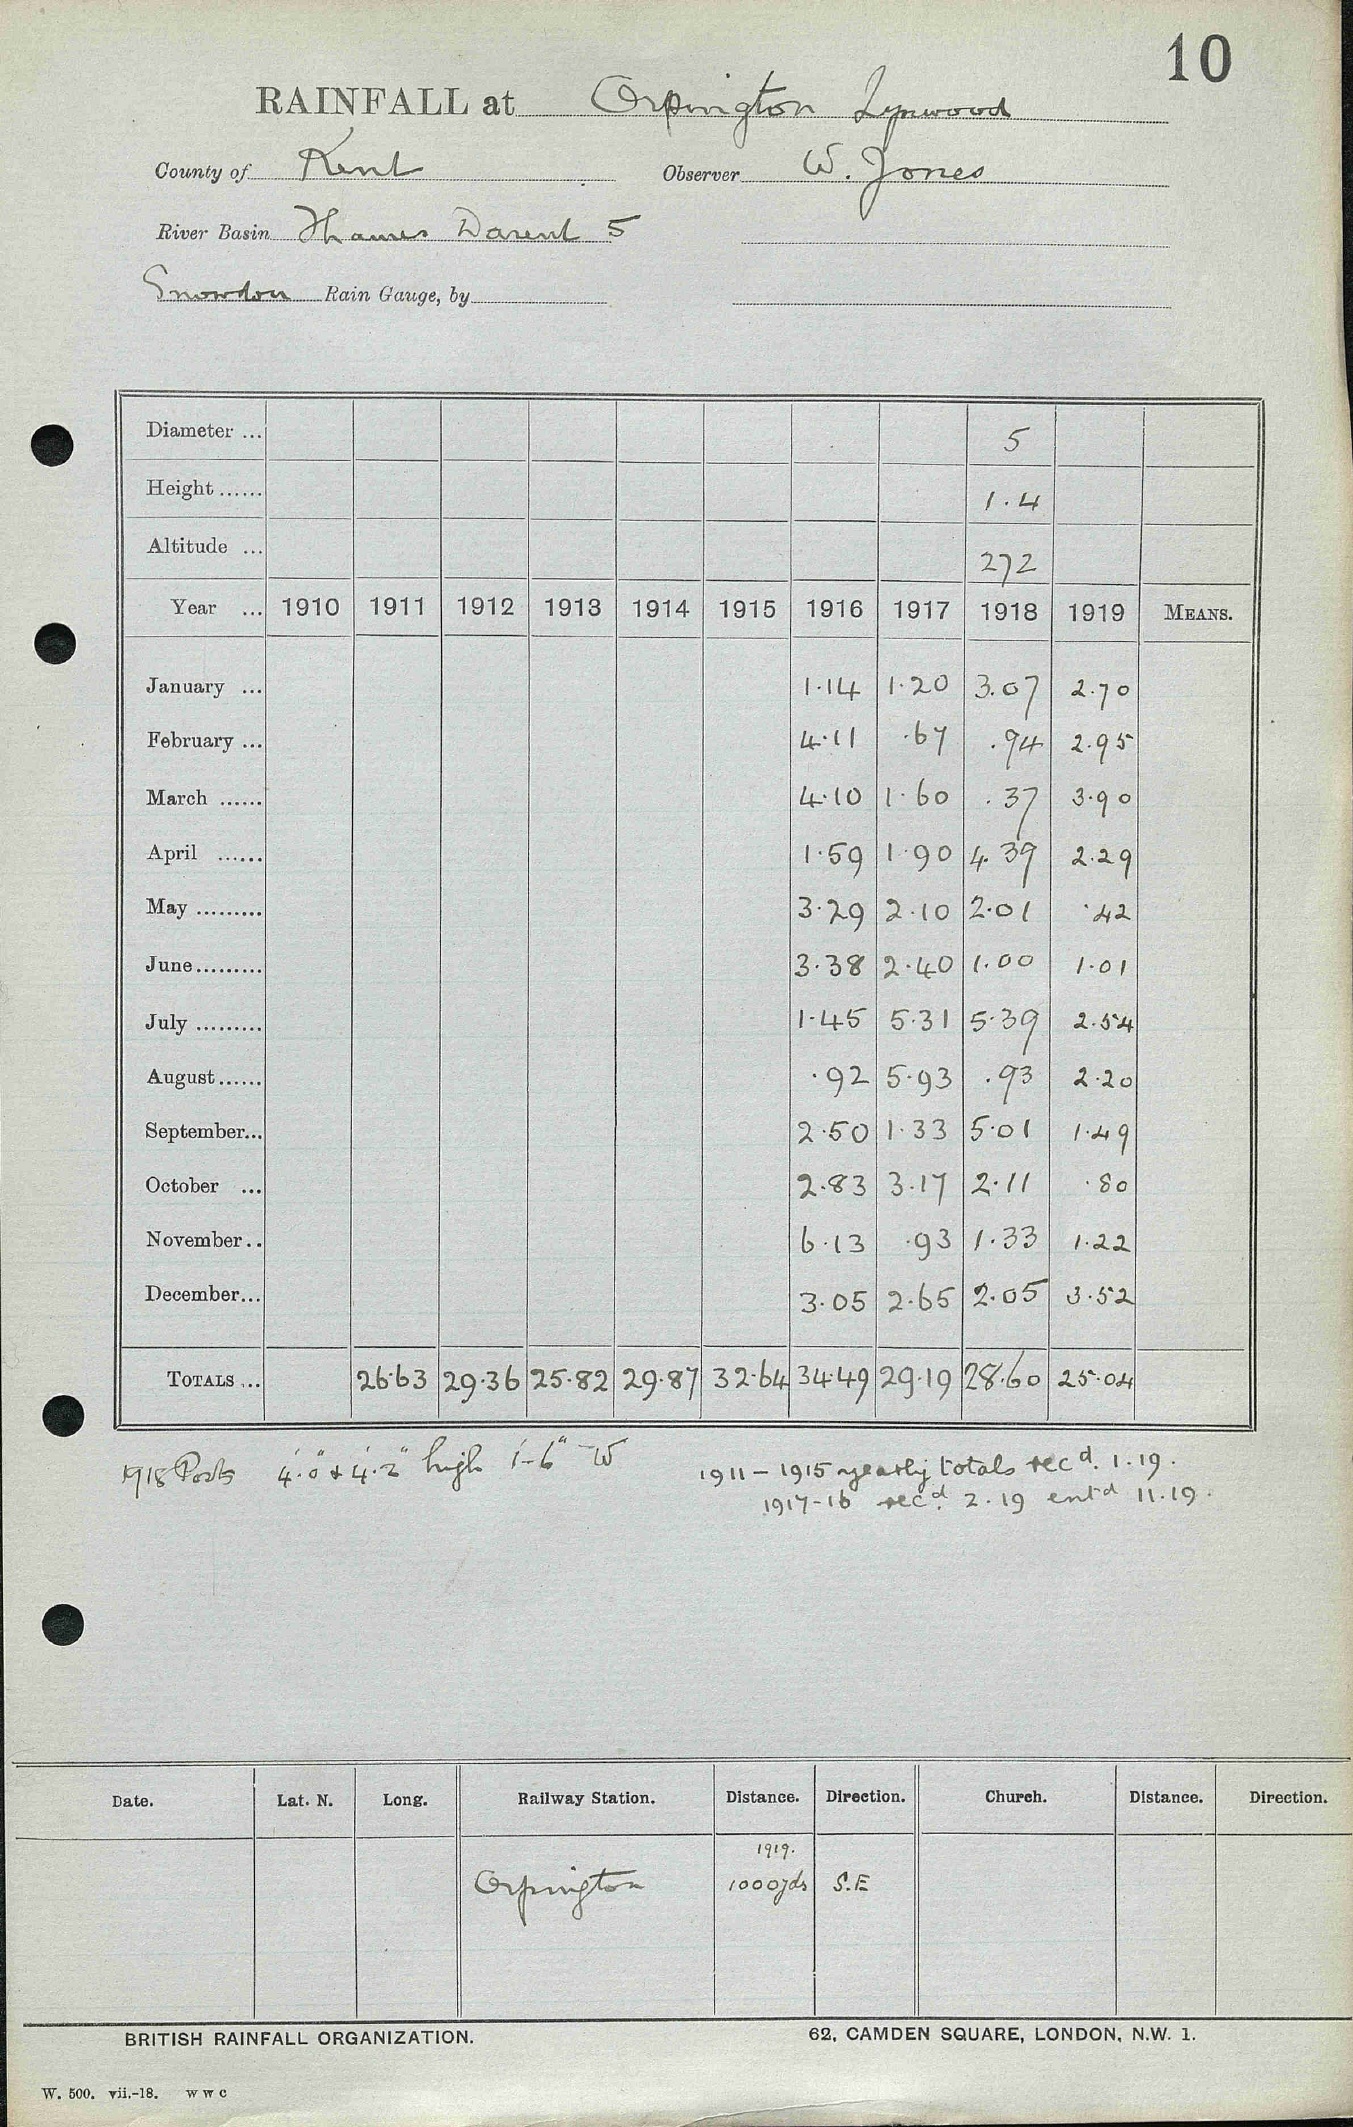 10
RAINFALL at Orpington Lynwood
County of Kent Observer W. Jones
River Basin Thames Darent 5
Snowdon Rain Gauge, by
Diameter ... 5
Height ...... 1.4
Altitude ... 272
Year ... 1910 1911 1912 1913 1914 1915 1916 1917 1918 1919 MEANS.
January ... 1.14 1.20 3.07 2.70
February ... 4.11 .67 .94 2.95
March ...... 4.10 1.60 .37 3.90
April ...... 1.59 1.90 4.39 2.29
May ......... 3.29 2.10 2.01 .42
June ......... 3.38 2.40 1.00 1.01
July ......... 1.45 5.31 5.39 2.54
August ...... .92 5.93 .93 2.20
September... 2.50 1.33 5.01 1.49
October ... 2.83 3.17 2.11 .80
November .. 6.13 .93 1.33 1.22
December... 3.05 2.65 2.05 3.52
TOTALS ... 26.63 29.36 25.82 29.87 32.64 34.49 29.19 28.60 25.04
1918 Posts 4'.0" & 4'.2" high 1'-6" W
1911-1915 yearly totals recd. 1.19.
1917-16 recd. 2.19 entd 11.19.
Date. Lat. N. Long. Railway Station. Distance. Direction. Church. Distance. Direction.
1919.
Orpington 1000yds S.E
BRITISH RAINFALL ORGANIZATION. 62, CAMDEN SQUARE, LONDON, N.W. 1.
W. 500. vii.-18. W W C